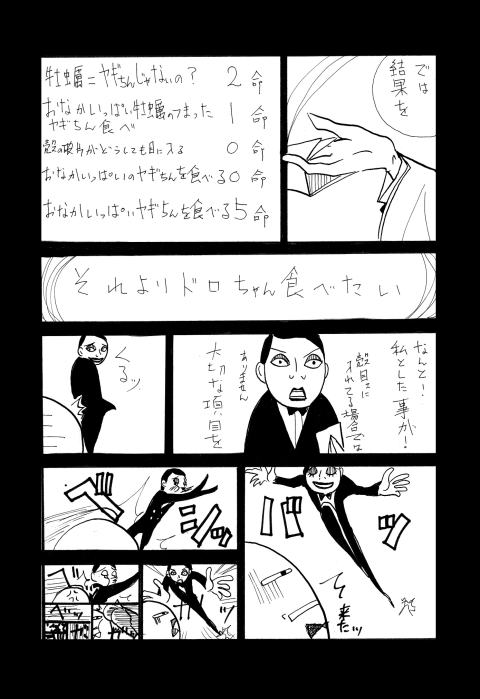 では
結果を
牡蠣=ヤギちんじゃないの? 2命
おなかいっぱい牡蠣のつまった
ヤギちん食べ 1命
殻の破片がどうしても目に入る 0命
おなかいっぱいのヤギちんを食べる 0命
おなかいっぱいヤギちんを食べる 5命
それよりドロちゃん食べたい
なんと!
私とした事が!
大切な項目を
ありません
くるッ
バッ
て
来たッ
ベジッ